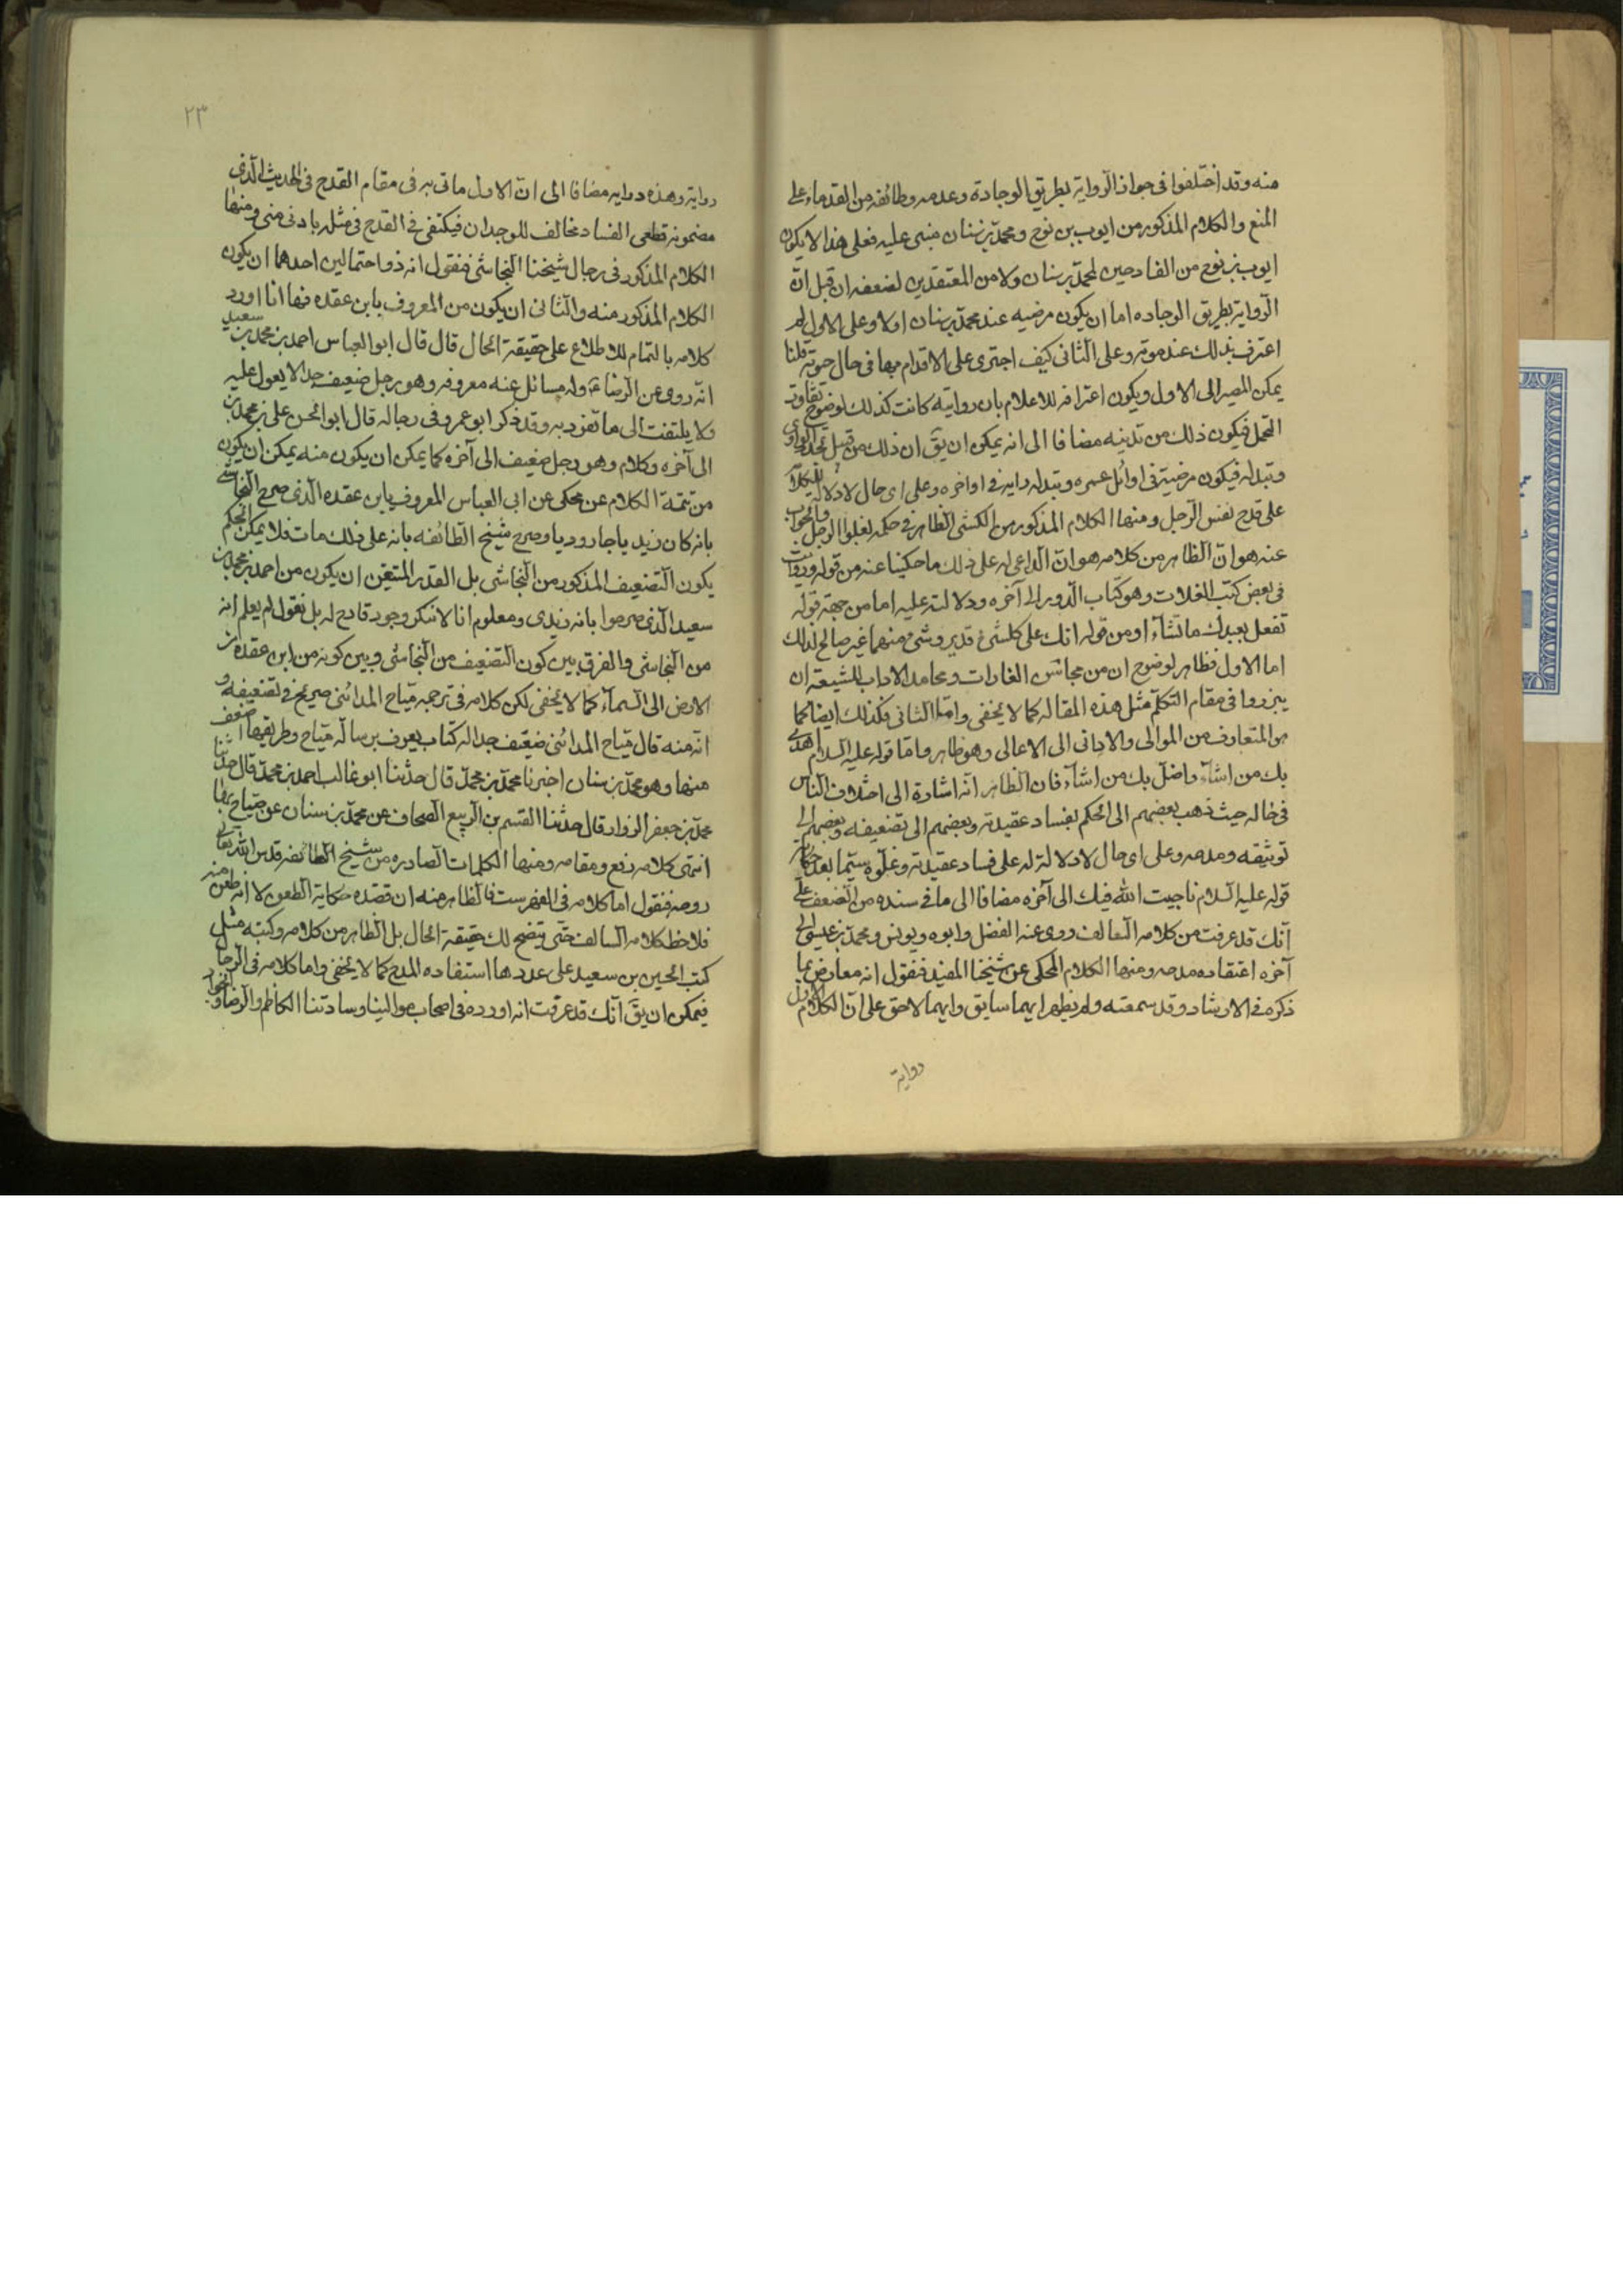 منه وقد اختلفوا فى جواز الرواية بطريق الوجادة وعدمه وطائفه من القدماء على
المنع والكلام المذكور من ايوب بن نوح ومحمد بن سنان مبنى عليه فعلى هذا لا يكون
ايوب بن نوح من القادحين لمحمد بن سنان ولا من المعتقدين لضعفه ان قيل انّ
الرواية بطريق الوجاده اما ان يكون مرضيه عند محمد بن سنان اولا وعلى الاول لم
اعترف بذلك عند موته وعلى الثانى كيف اجترى على الاقدام بها فى حال حيوته قلنا
يمكن المصير الى الاول ويكون اعترافه للاعلام بان روايته كانت كذلك لوضوح تفاوت
التحمل فيكون ذلك من تدينه مضافا الى انه يمكن ان يقَ ان ذلك من قبيل تجدد الراى
وتبدله فيكون مرضية فى اوائل عمره وتبدله رايه فى اواخره وعلى اى حال لا دلالة للكلام
على قدح نفس الرجل ومنها الكلام المذكور من الكشى الظاهر فى حكمه بغلوا الرجل والجواب
عنه هو انّ الظاهر من كلامه هو انّ الداعى له على ذلك ما حكينا عنه من قوله ورويت
فى بعض كتب الغلات وهو كتاب الدور الى آخره ودلالته عليه اما من جهة قوله
تفعل بعبدك ما تشآء او من قوله انك على كلشئ قدير وشئ منهما غير صالح لذلك
اما الاول فظاهر لوضوح ان من الغادات ومحامد الاداب للشيعة ان
يبرزوا فى مقام التكلم مثل هذه المقاله كما لا يخفى وامّا الثانى فكذلك ايضا كما
هو المتعارف من الموالى والادانى الى الاعالى وهو ظاهر وامّا قوله عليه السلام اهدى
بك من اشآء واضلّ بك من اشآء فان الظاهر انه اشارة الى اختلاف الناس
فى حاله حيث ذهب بعضهم الى الحكم بفساد عقيدته وبعضهم الى تضعيفه وبعضهم الى
توثيقه ومدحه وعلى اى حال لا دلالة له على فساد عقيدته وغلوه سيّما بعد حكاية
قوله عليه السلام ناجيت الله فيك الى آخره مضافا الى ما فى سنده من الضعف على
انّك قد عرفت من كلامه السالف روى عنه الفضل وابوه ويونس ومحمد بن عيسى الى
آخره اعتقاده مدحه ومنها الكلام المحكى عن شيخنا المفيد فنقول انه معارض بما
ذكره فى الارشاد وقد سمعته ولم يظهر ايهما سابق وايهما لاحق على انّ الكلام الاول
رواية
٢٣
رواية وهذه دراية مضافا الى انّ الاول ماتى به فى مقام القدح فى الحديث الّذى
مضمونه قطعى الفساد مخالف للوجدان فيكتفى فى القدح فى مثله بادنى منى ومنها
الكلام المذكور فى رجال شيخنا النجاشى فنقول انه ذو احتمالين احدهما ان يكون
الكلام المذكور منه والثانى ان يكون من المعروف بابن عقده فها انا اورد
كلامه بالتمام للاطلاع على حقيقة الحال قال قال ابو العباس احمد بن محمد بن سعيد
انّه روى عن الرضا عَ وله مسائل عنه معروفه وهو رجل ضعيف جدا لا يعول عليه
ولا يلتفت الى ما تفرد به وقد ذكر ابو عمرو فى رجاله قال ابو الحسن على بن محمد بن
الى آخره وكلام وهو رجل ضعيف الى آخره كما يمكن ان يكون منه يمكن ان يكون
من تتمة الكلام عن محكى عن ابى العباس المعروف بابن عقده الّذى صرح النجاشى
بانه كان زيديا جاروديا وصرح شيخ الطائفه بانه على ذلك مات فلا يمكن الحكم
يكون التضعيف المذكور من النجاشى بل القدر المتيقن ان يكون من احمد بن محمد بن
سعيد الّذى صرحوا بانه زيدى ومعلوم انا لا ننكر وجود قادح له بل نقول لم يعلم انه
من النجاشى والفرق بين كون التضعيف من النجاشى وبين كونه من ابن عقده من
الارض الى السمآء كما لا يخفى لكن كلامه فى ترجمه ميّاح المدائنى صريح فى تضعيفه و
انّه منه قال ميّاح المدائنى ضعيف جدا له كتاب يعرف برسالة ميّاح وطريقها اضعف
منها وهو محمد بن سنان اخبرنا محمد بن محمد قال حدثنا ابو غالب احمد بن محمد قال حدثنا
محمد بن جعفر الرزاز قال حدثنا القسم بن الربيع الصحاف عن محمد بن سنان عن ميّاح بها
انتهى كلامه رفع ومقامه ومنها الكلمات الصادره من شيخ الطائفه قدس الله تعالى
روحه فنقول اما كلامه فى الفهرست فالظاهر منه ان قصده حكاية الطعن لا انه طعن منه
فلاحظ كلامه السالف حتى يتضح لك حقيقة الحال بل الظاهر من كلامه وكتبه مثل
كتب الحسين بن سعيد على عددها استفاده المدح كما لا يخفى واما كلامه فى الرجال
فيمكن ان يقَ انّك قد عرفت انه اورده فى اصحاب موالينا وسادتنا الكاظم والرضا و